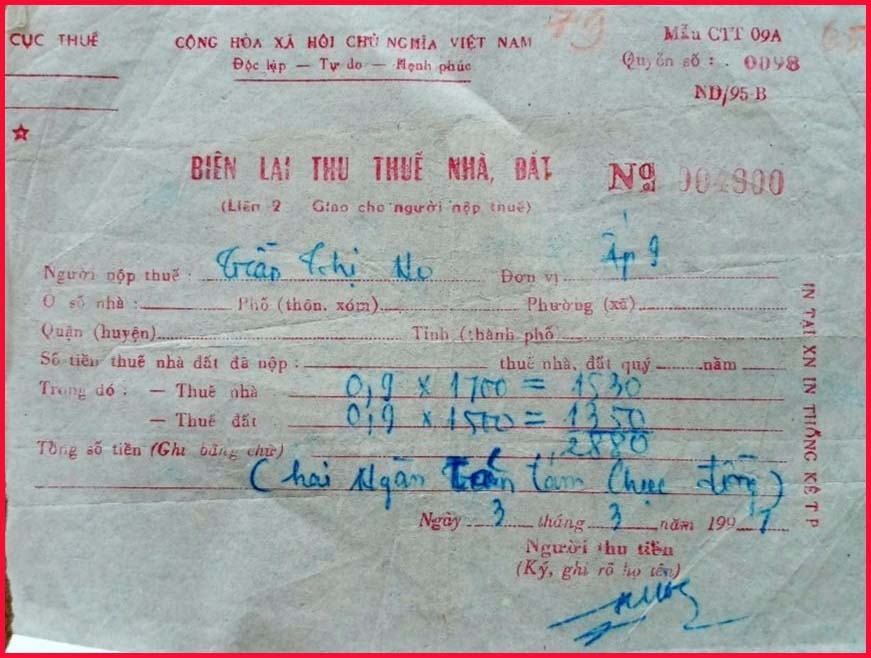 79
65
CỤC THUẾ
CỘNG HÒA XÃ HỘI CHỦ NGHĨA VIỆT NAM
Độc lập — Tự do — Hạnh phúc
Mẫu CTT 09A
Quyển số : 0098
NĐ/95-B
BIÊN LAI THU THUẾ NHÀ, ĐẤT
Nº 004800
(Liên 2 Giao cho người nộp thuế)
Người nộp thuế : Trần Thị No Đơn vị Ấp 9
Ở số nhà : Phố (thôn, xóm) Phường (xã)
Quận (huyện) Tỉnh (thành phố
Số tiền thuế nhà đất đã nộp : thuế nhà, đất quý năm
Trong đó : — Thuế nhà 0,9 x 1700 = 1530
— Thuế đất 0,9 x 1500 = 1350
Tổng số tiền (Ghi bằng chữ) 2880
(hai ngàn tám tám chục đồng)
Ngày 3 tháng 3 năm 1997
Người thu tiền
(Ký, ghi rõ họ tên)
IN TẠI XN IN THỐNG KÊ TP